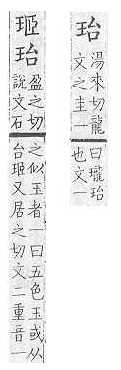 珆
湯來切龍
文之圭一
曰瓏珆
也文一
珆
盈之切
說文石
之似玉者一曰五色玉或从
台又居之切文二重音一